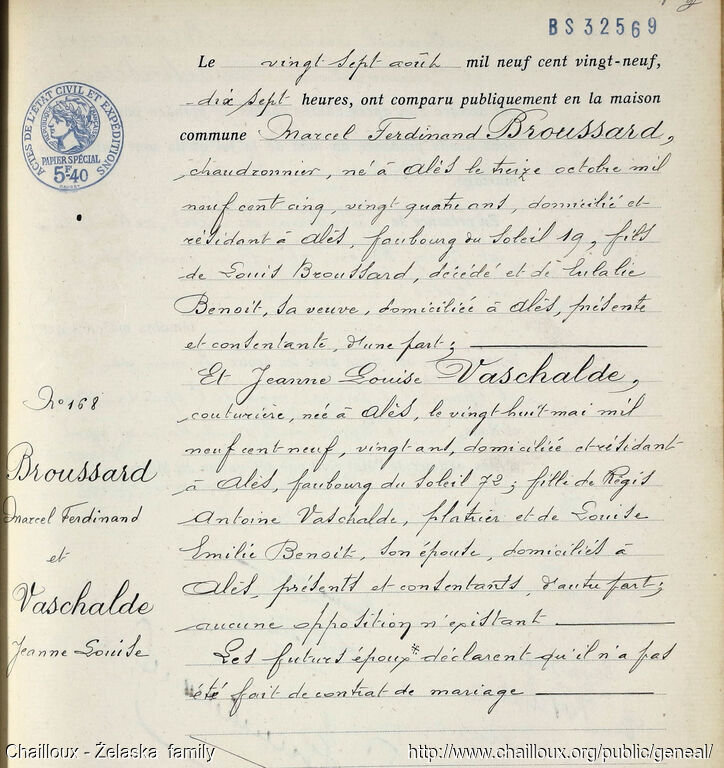 BS 32569
Le vingt sept août mil neuf cent vingt-neuf,
dix sept heures, ont comparu publiquement en la maison
commune Marcel Ferdinand Broussard,
chaudronnier, né à Alès le treize octobre mil
neuf cent cinq, vingt quatre ans, domicilié et
résidant à Alès, faubourg du Soleil 19, fils
de Louis Broussard, décédé et de Eulalie
Benoit, sa veuve, domiciliée à Alès, présente
et consentante, d'une part;
Et Jeanne Louise Vaschalde,
couturière, née à Alès, le vingt huit mai mil
neuf cent neuf, vingt ans, domiciliée et résidant
à Alès, faubourg du Soleil 72; fille de Régis
Antoine Vaschalde, platrier et de Louise
Emilie Benoit, son épouse, domiciliés à
Alès, présents et consentants, d'autre part;
aucune opposition n'existant
Les futurs époux* déclarent qu'il n'a pas
été fait de contrat de mariage
ACTES DE L'ÉTAT CIVIL ET EXPÉDITIONS
PAPIER SPÉCIAL
5F40
No 168
Broussard
Marcel Ferdinand
et
Vaschalde
Jeanne Louise
Chailloux - Żelaska family
http://www.chailloux.org/public/geneal/